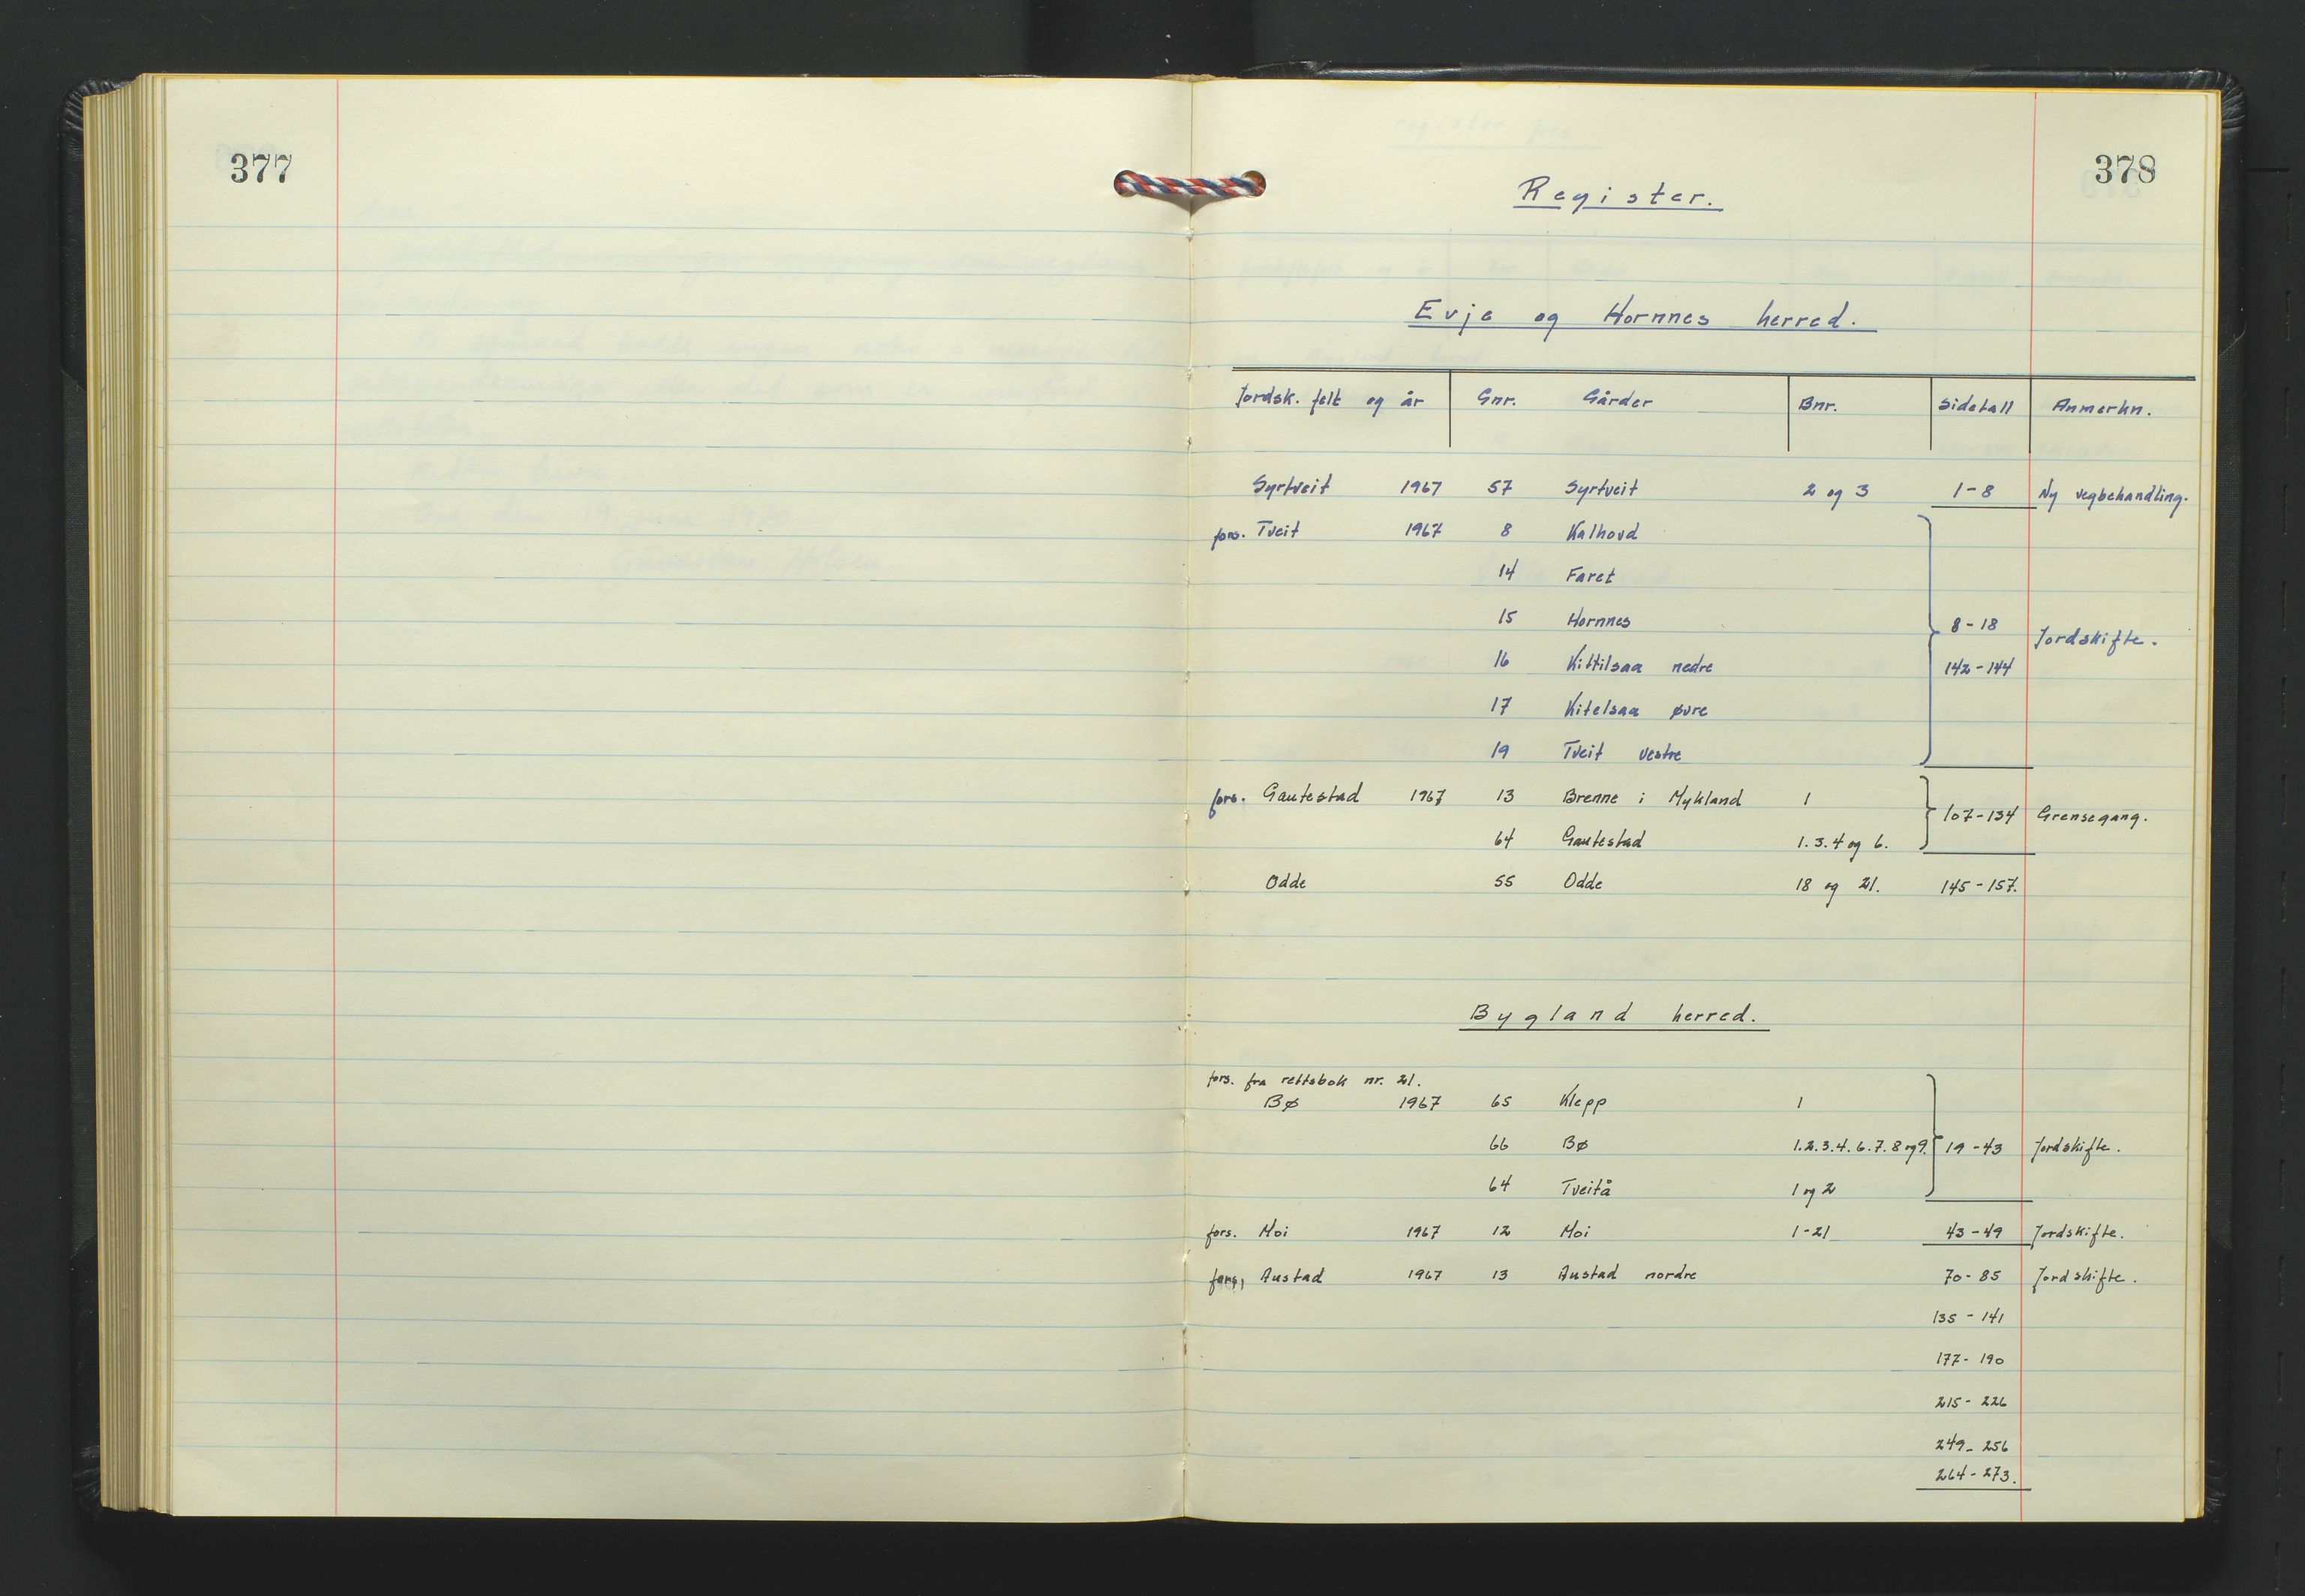 377
378
Register.
Evje og Hornnes herred.
Jordsk. felt og år Gnr. Gårder Bnr. Sidetall Anmerkn.
Syrtveit 1967 57 Syrtveit 2 og 3 1-8 Ny vegbehandling.
fors. Tveit 1967 8 Kalhovd
14 Faret
15 Hornnes 8-18 Jordskifte.
16 Kittilsaa nedre 142-144
17 Kitelsaa øvre
19 Tveit vestre
fors. Gautestad 1967 13 Brenne i Mykland 1 107-134 Grensegang.
64 Gautestad 1.3.4 og 6.
Odde 55 Odde 18 og 21. 145-157.
Bygland herred.
fors. fra rettsbok nr. 21.
Bø 1967 65 Klepp 1
66 Bø 1.2.3.4.6.7.8 og 9. 19-43 Jordskifte.
64 Tveitå 1 og 2
fors. Moi 1967 12 Moi 1-21 43-49 Jordskifte.
fors, Austad 1967 13 Austad nordre 70-85 Jordskifte.
135-141
177-190
215-226
249-256
264-273.